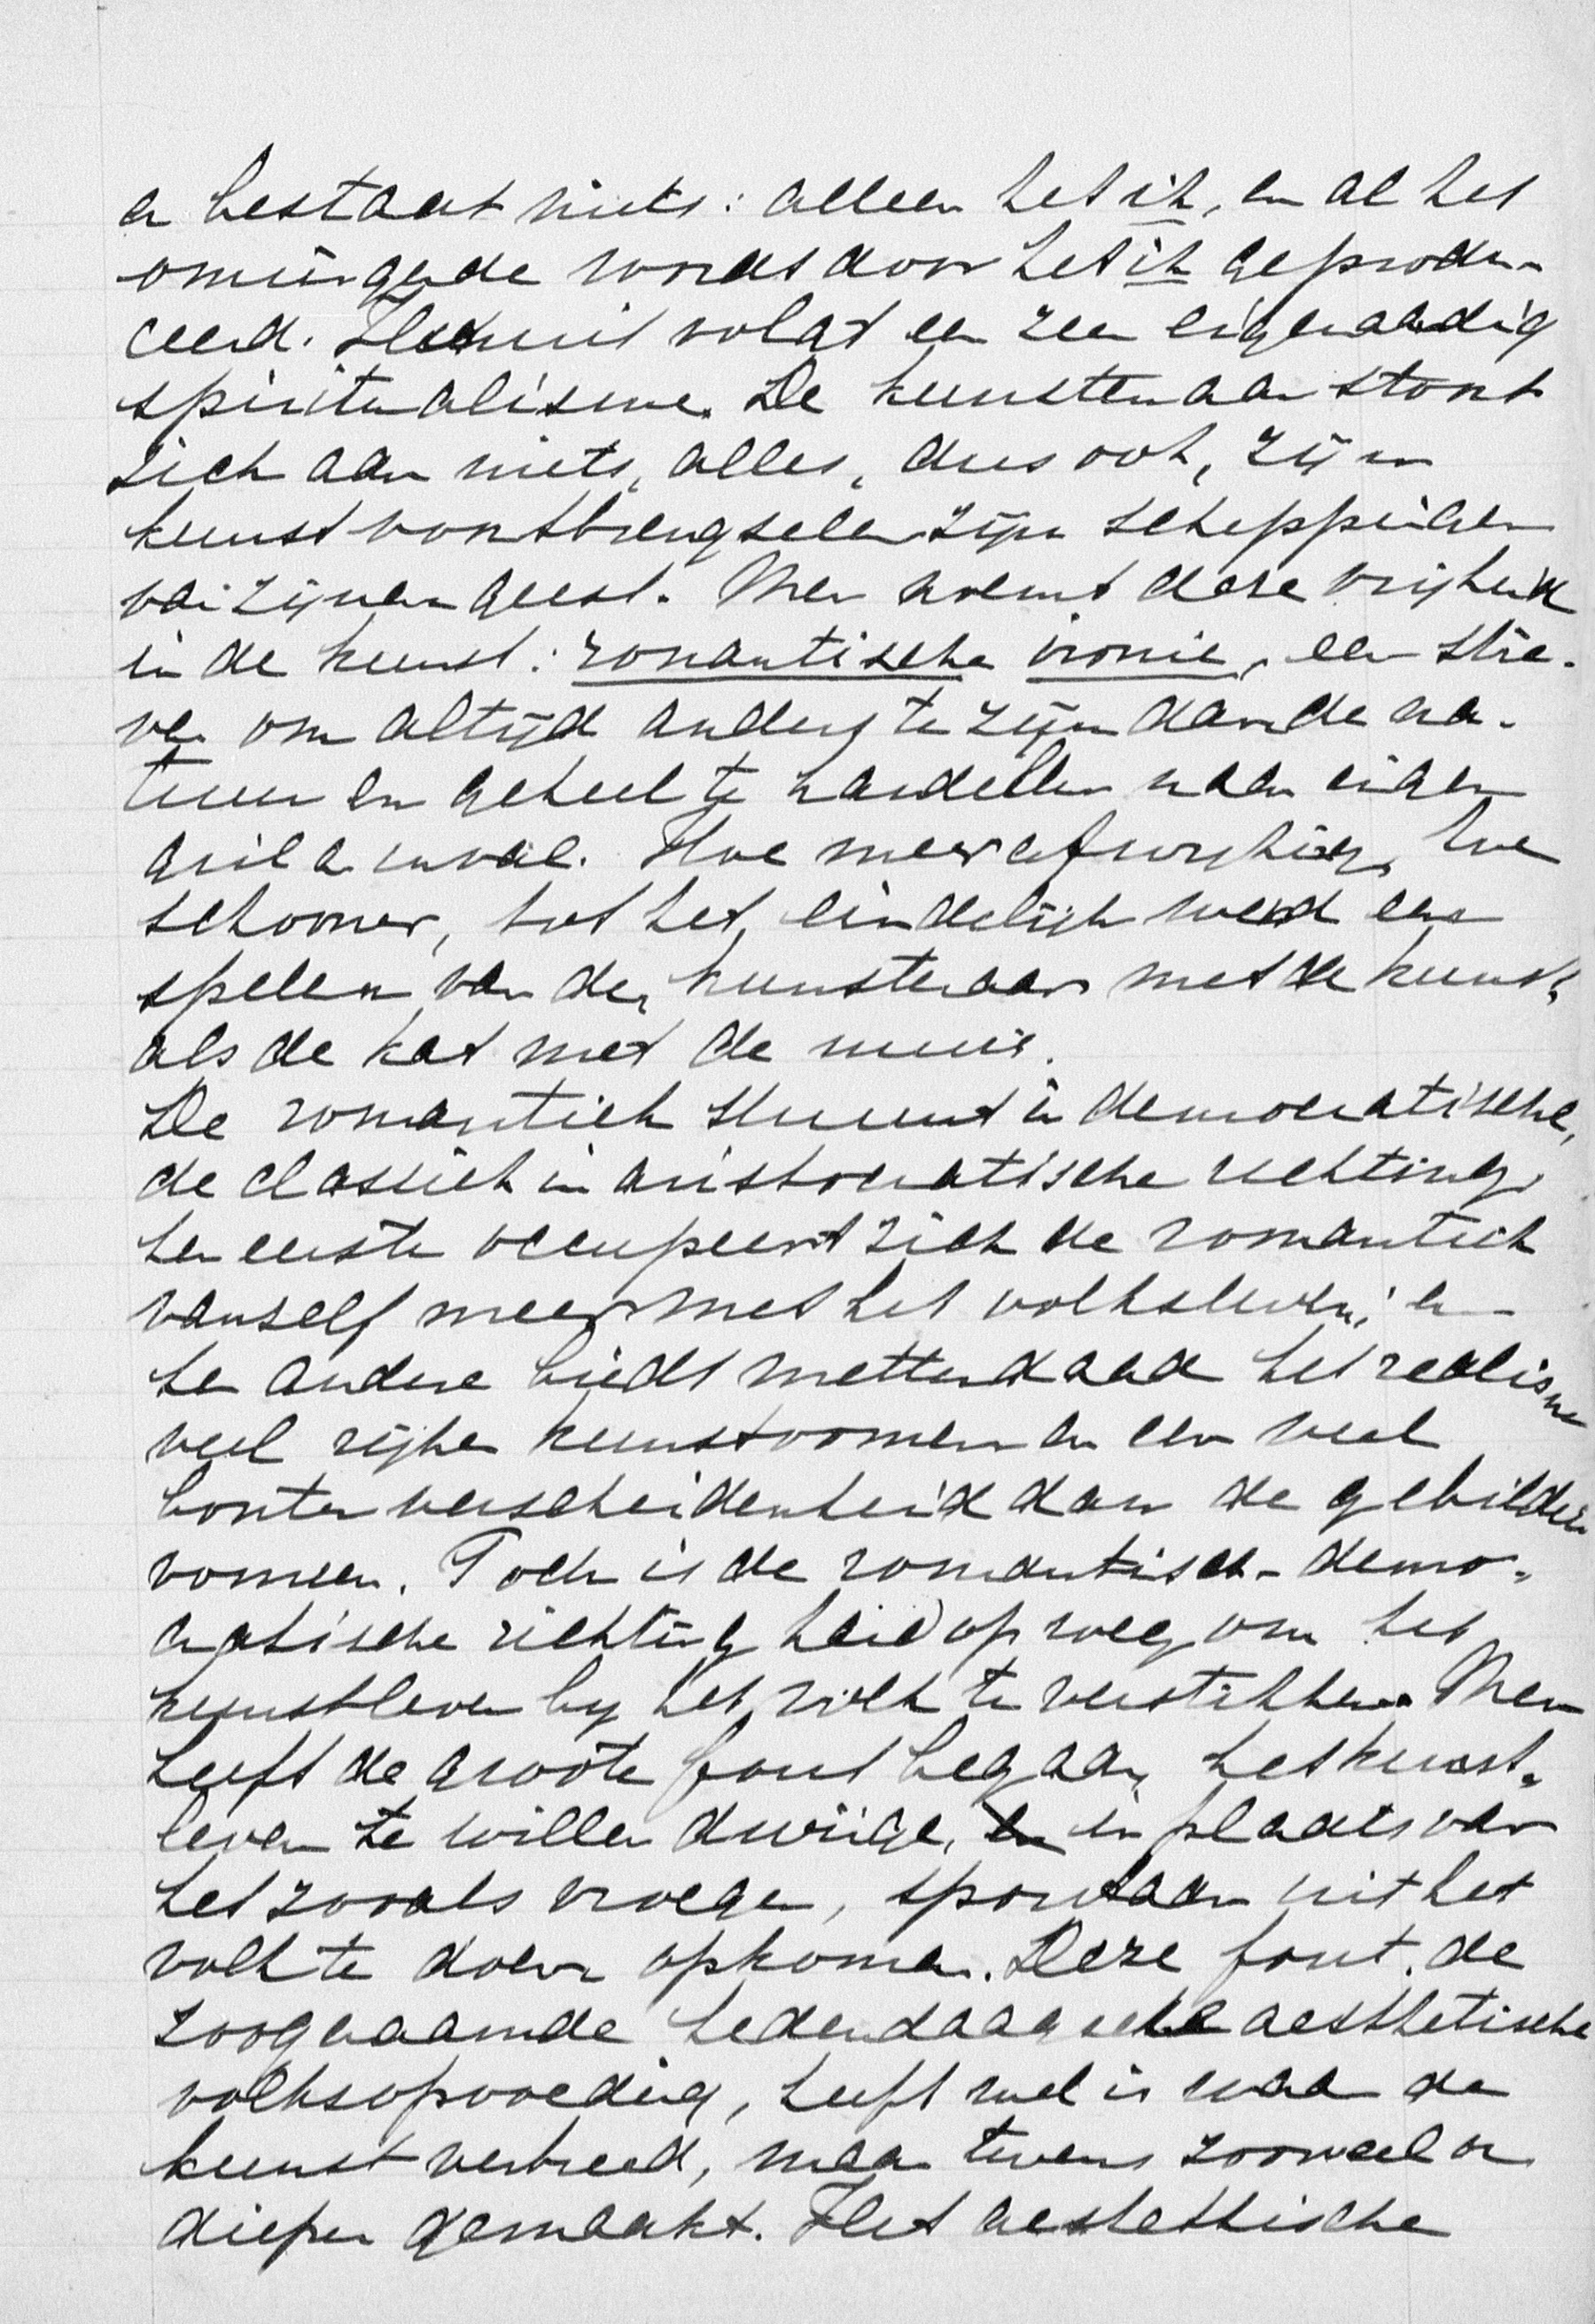 er bestaat niets: alleen het ik, en al het
omringende wordt door het ik geprodu-
ceerd. Hieruit volgt een zeer eigenaardig
spiritualisme. De kunstenaar stoort
zich aan niets, alles, dus ook, zijn
kunstvoortbrengselen zijn scheppingen
van zijnen geest. Men noemt deze vrijheid
in de kunst: romantische ironie, een stre-
ven om altijd anders te zijn dan de na-
tuur en geheel te handelen naar eigen
gril en inval. Hoe meer afwijking, hoe
schooner, tot het eindelijk werd een
spelen van den kunstenaar met de kunst,
als de kat met de muis.
De romantiek stuurt in democratische,
de classiek in aristocratische richting.
Ten eerste occupeert zich de romantiek
vanzelf meer met het volksleven; en
ten andere biedt metterdaad het realisme
veel rijker kunstvormen en een veel
bonter verscheidenheid dan de gebilder
vormen. Toch is de romantisch-demo-
cratische richting hard op weg om het
kunstleven bij het volk te verstikken. Men
heeft de groote fout begaan het kunst-
leven te willen dwingen, in plaats van
het zooals vroeger, spontaan uit het
volk te doen opkomen. Deze fout, de
zoogenaamde hedendaagsche aesthetische
volksopvoeding, heeft wel is waar de
kunst verbreed, maar tevens zooveel on
dieper gemaakt. Het aesthethische